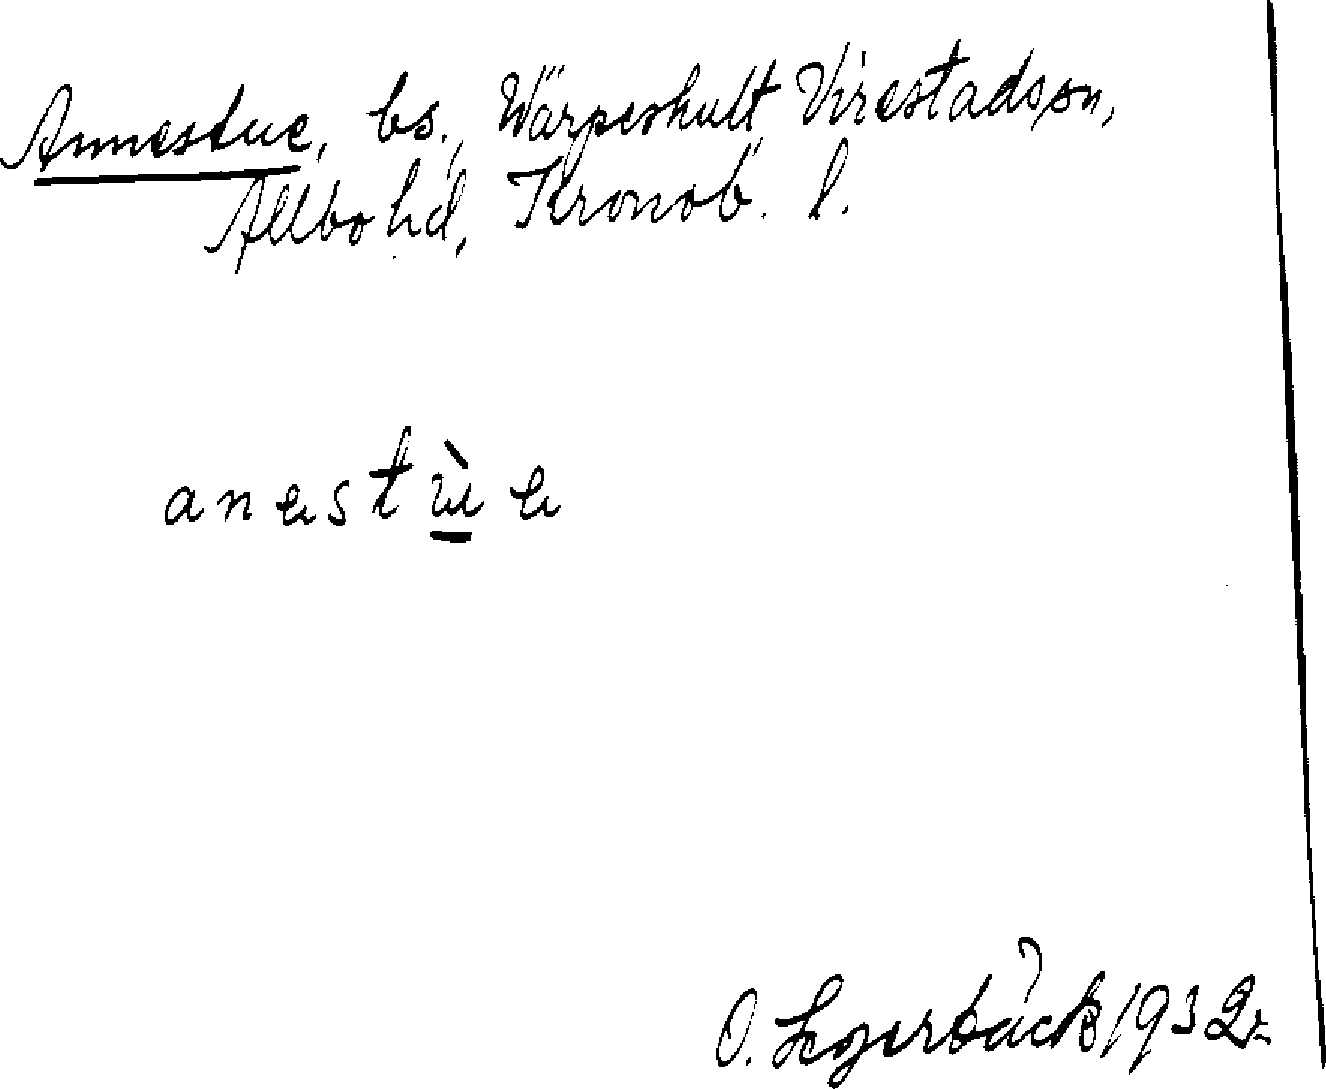 Annestue, bs., Wärpeshult, Virestads sn,
Allbo hd, Kronob. l.
anestùe
O. 1932